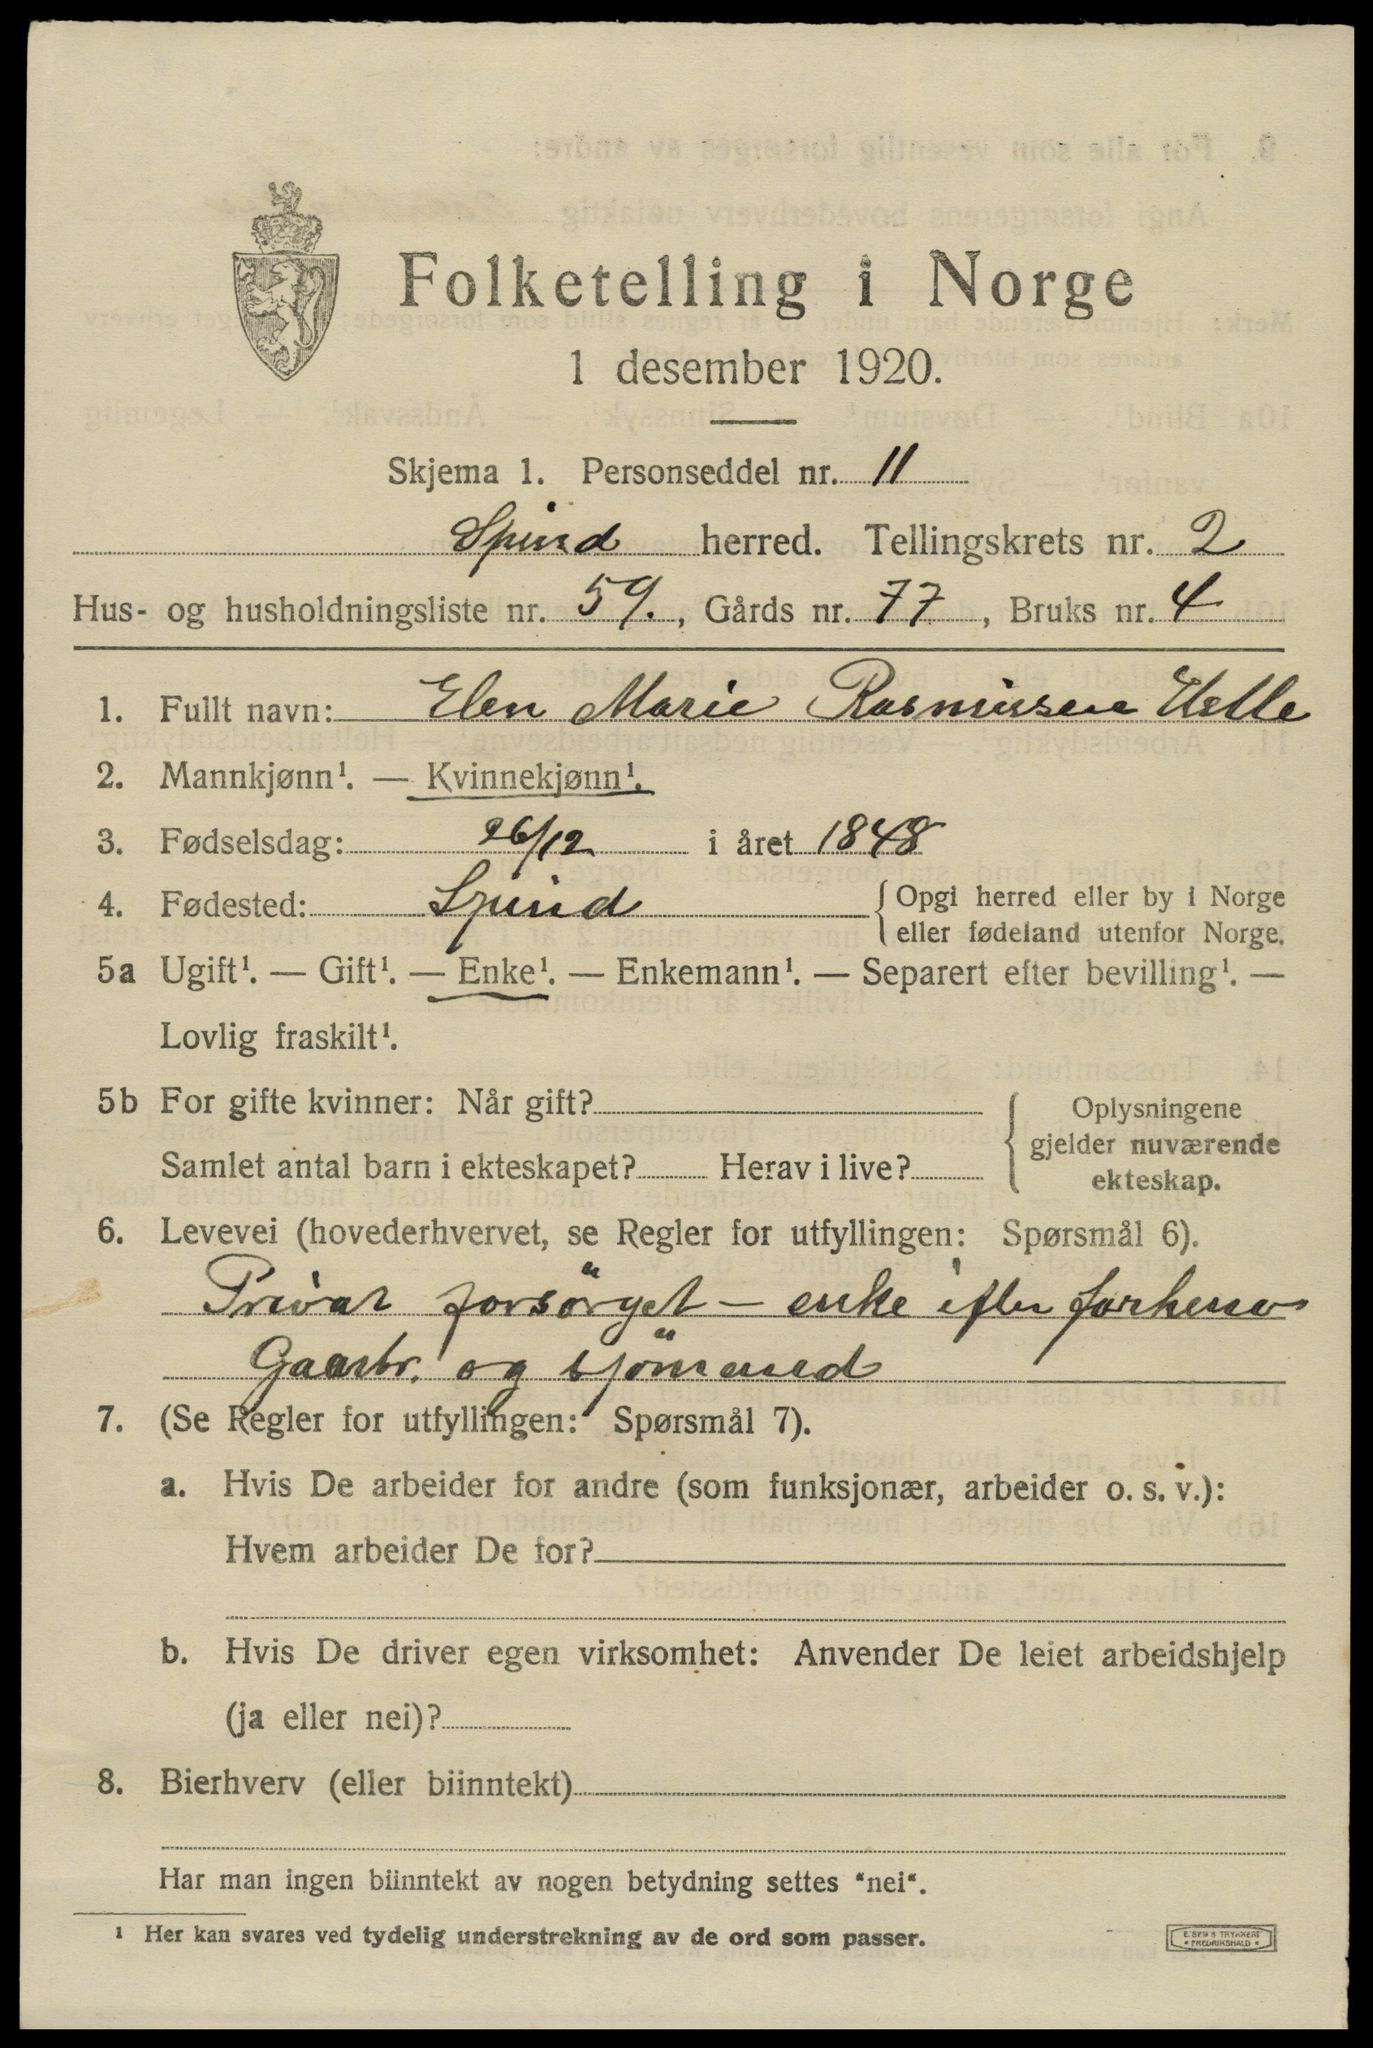 Folketelling i Norge
1 desember 1920.
Skjema 1. Personseddel nr. 11
Spind herred. Tellingskrets nr. 2
Hus- og husholdningsliste nr. 59., Gårds nr. 77, Bruks nr. 4
1. Fullt navn: Elen Marie Rasmussen Helle
2. Mannkjønn¹. — Kvinnekjønn¹.
3. Fødselsdag: 26/12 i året 1848
4. Fødested: Spind {Opgi herred eller by i Norge
eller fødeland utenfor Norge.
5a Ugift¹. — Gift¹. — Enke¹. — Enkemann¹. — Separert efter bevilling¹. —
Lovlig fraskilt¹.
5b For gifte kvinner: Når gift?
Samlet antal barn i ekteskapet? Herav i live?
{Oplysningene
gjelder nuværende
ekteskap.
6. Levevei (hovederhvervet, se Regler for utfyllingen: Spørsmål 6).
Privat forsörget — enke efter
Gaarbr. og sjömand
7. (Se Regler for utfyllingen: Spørsmål 7).
a. Hvis De arbeider for andre (som funksjonær, arbeider o. s. v.):
Hvem arbeider De for?
b. Hvis De driver egen virksomhet: Anvender De leiet arbeidshjelp
(ja eller nei)?
8. Bierhverv (eller biinntekt)
Har man ingen biinntekt av nogen betydning settes "nei".
¹ Her kan svares ved tydelig understrekning av de ord som passer.
E. SEM'S TRYKKERI
• FREDRIKSHALD •